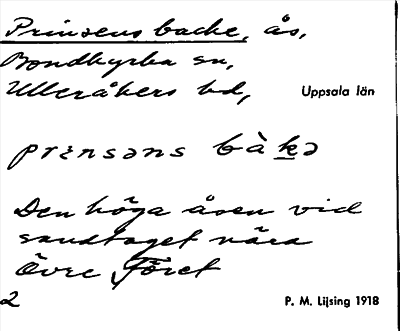 Prinsens backe, ås,
Bondkyrka sn,
Ulleråkers hd, Uppsala län
prinsəns bàkə
Den höga åsen vid
sandtaget nära
Övre Föret
2 P. M. Lijsing 1918